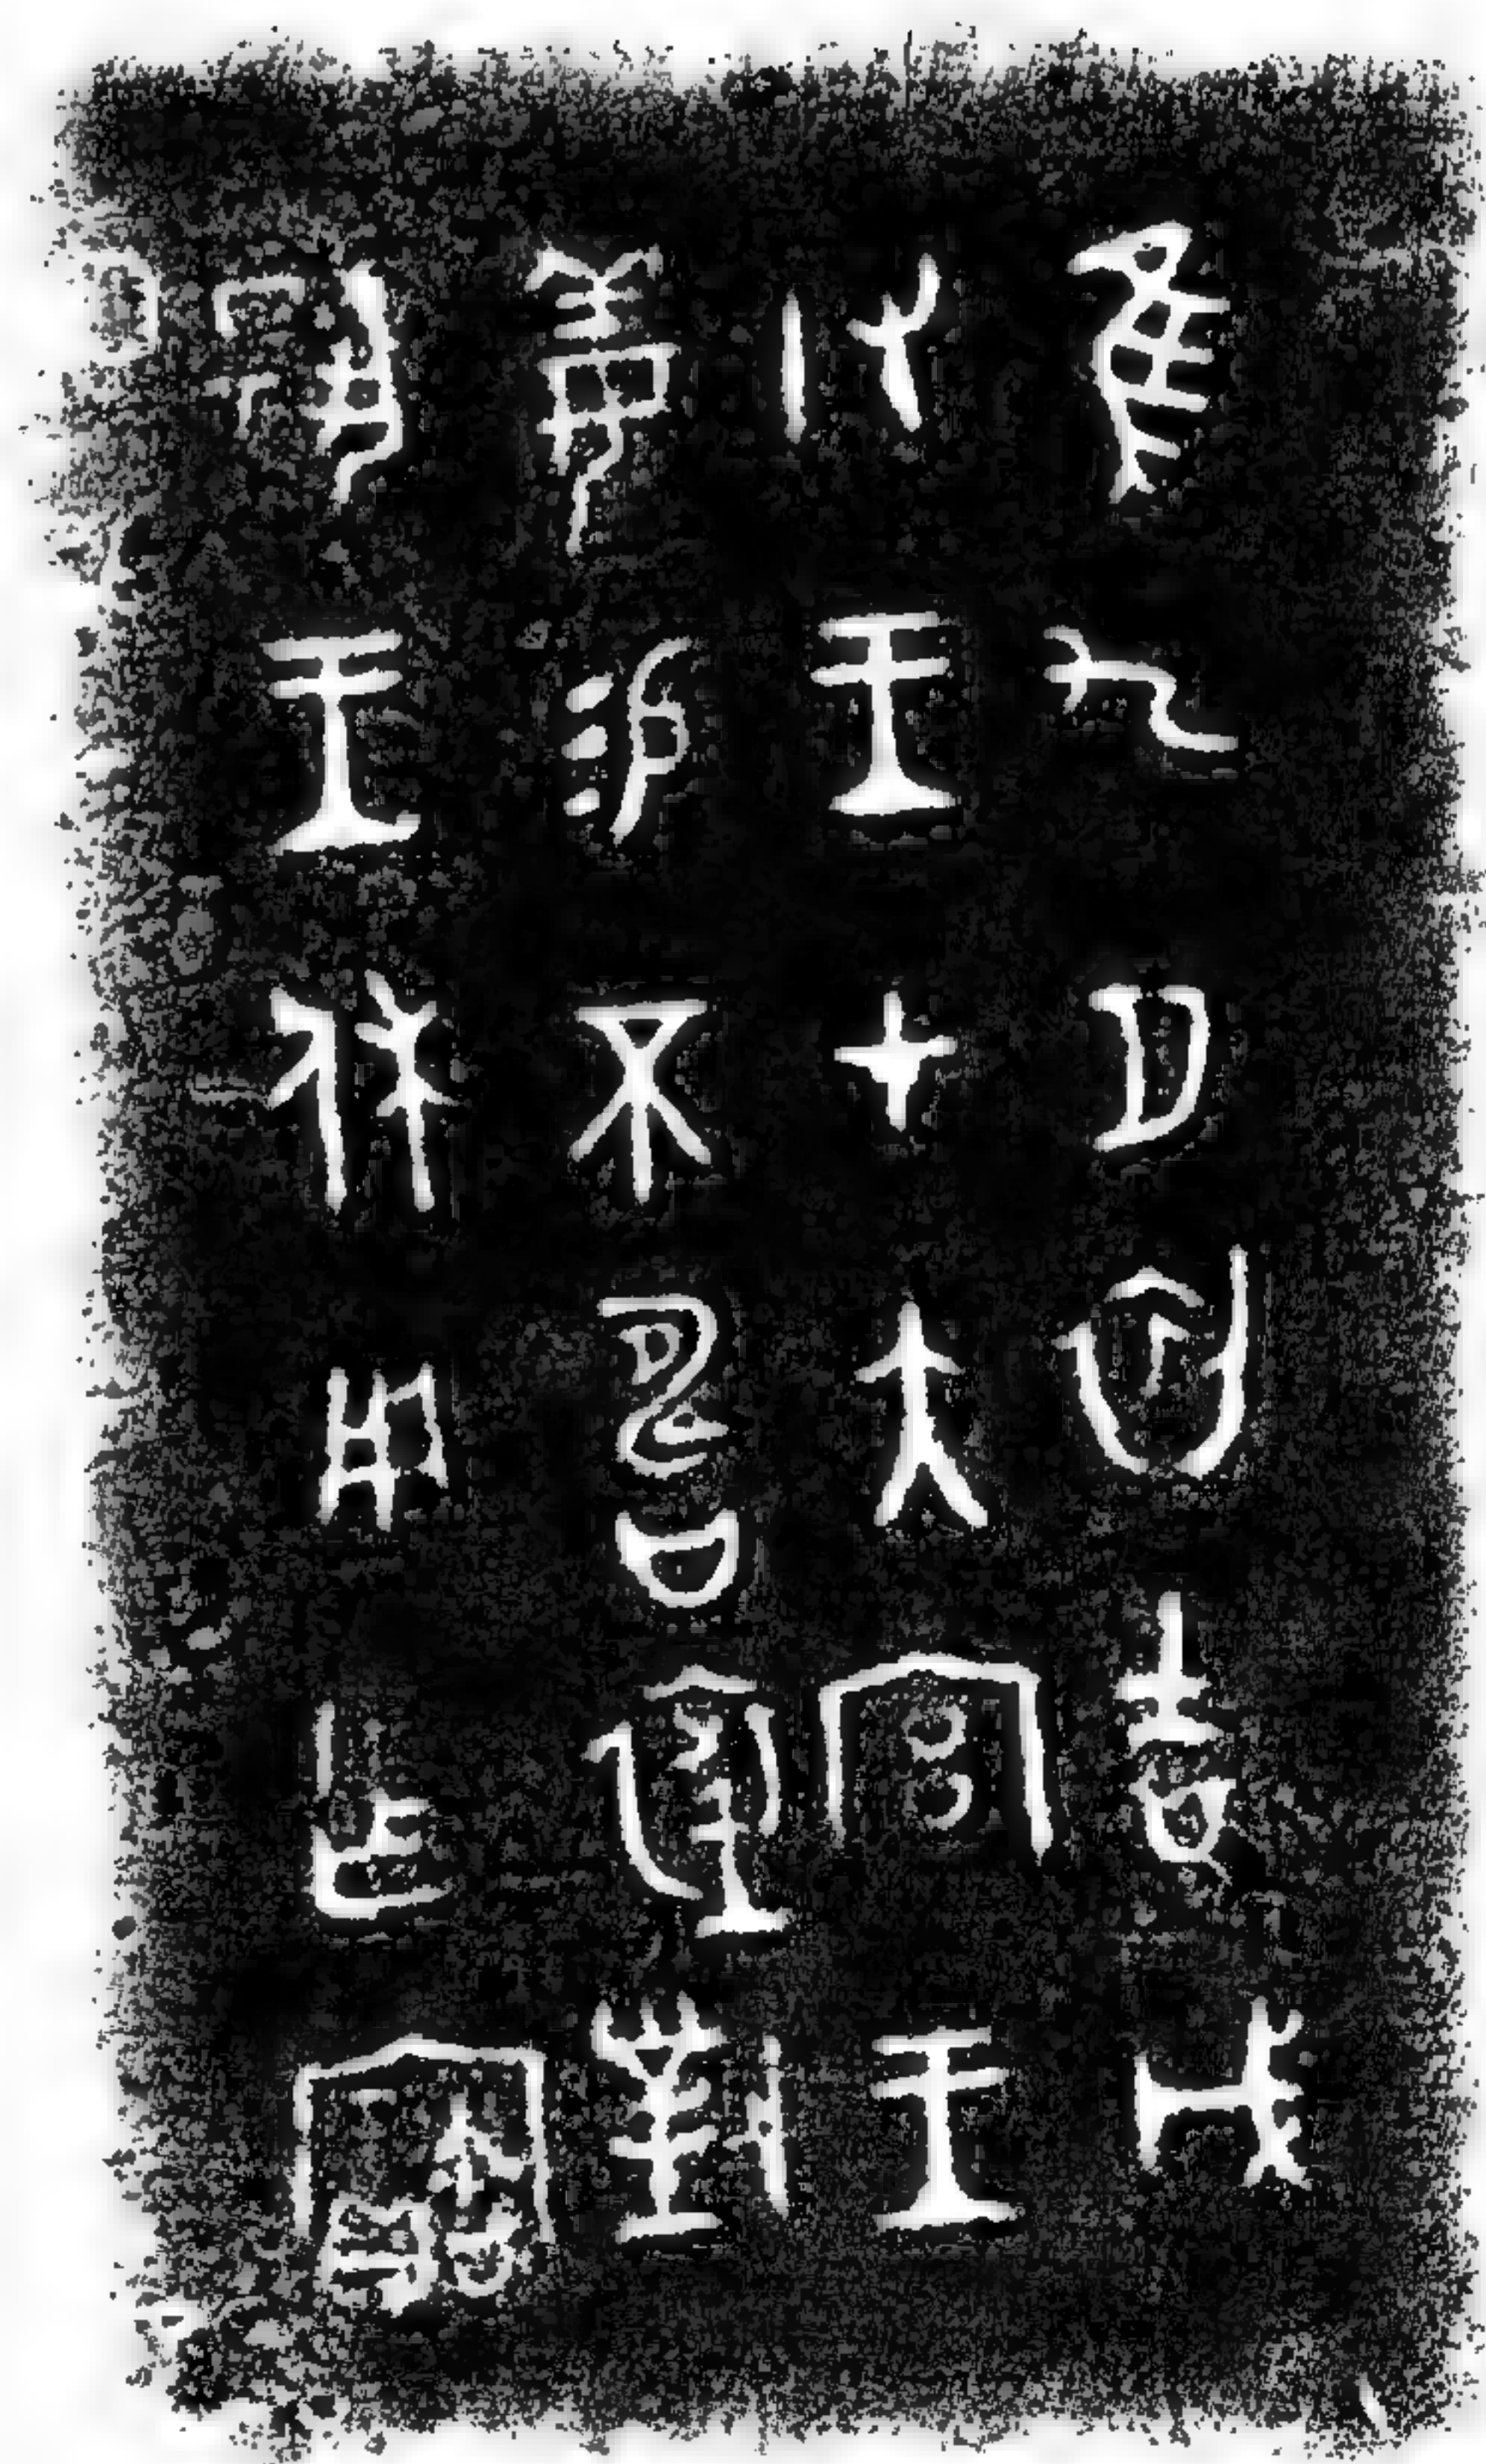 隹九月初吉戊
辰王才大宮王
姜易不壽裘對
揚王休用乍寶